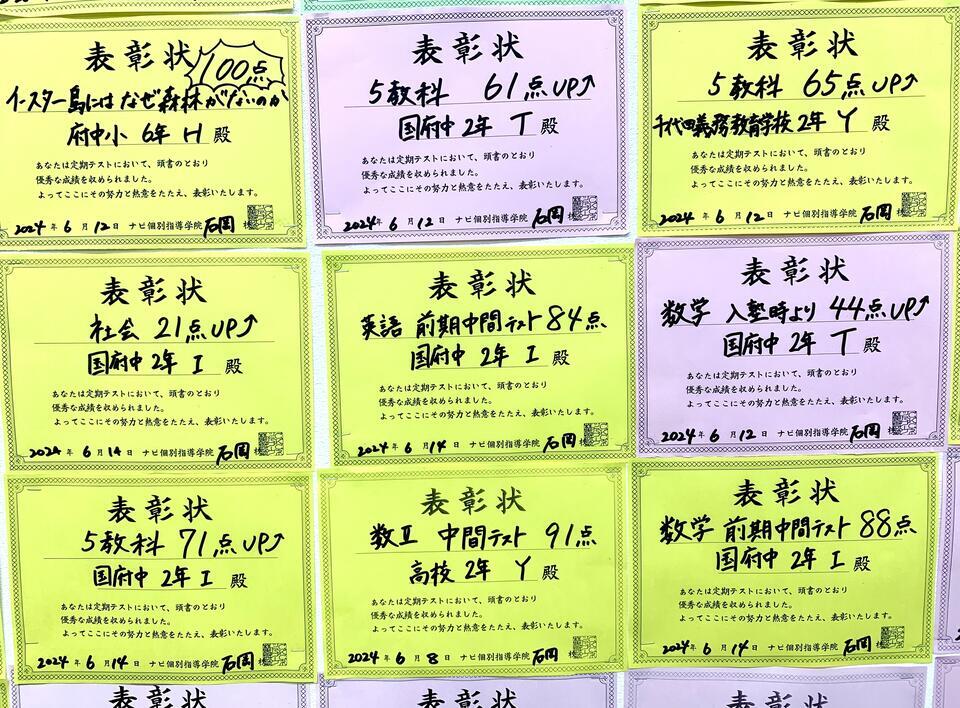 表彰状
100点
イースター島にはなぜ森林がないのか
府中小 6年 H 殿
あなたは定期テストにおいて、頭書のとおり
優秀な成績を収められました。
よってここにその努力と熱意をたたえ、表彰いたします。
2024年6月12日 ナビ個別指導学院 石岡校
表彰状
5教科 61点UP↑
国府中2年 T 殿
あなたは定期テストにおいて、頭書のとおり
優秀な成績を収められました。
よってここにその努力と熱意をたたえ、表彰いたします。
2024年6月12日 ナビ個別指導学院 石岡校
表彰状
5教科 65点UP↑
千代田義務教育学校2年 Y 殿
あなたは定期テストにおいて、頭書のとおり
優秀な成績を収められました。
よってここにその努力と熱意をたたえ、表彰いたします。
2024年6月12日 ナビ個別指導学院 石岡校
表彰状
社会 21点UP↑
国府中2年 I 殿
あなたは定期テストにおいて、頭書のとおり
優秀な成績を収められました。
よってここにその努力と熱意をたたえ、表彰いたします。
2024年6月14日 ナビ個別指導学院 石岡校
表彰状
英語 前期中間テスト84点
国府中 2年 I 殿
あなたは定期テストにおいて、頭書のとおり
優秀な成績を収められました。
よってここにその努力と熱意をたたえ、表彰いたします。
2024年6月14日 ナビ個別指導学院 石岡校
表彰状
数学 入塾時より 44点UP↑
国府中 2年 T 殿
あなたは定期テストにおいて、頭書のとおり
優秀な成績を収められました。
よってここにその努力と熱意をたたえ、表彰いたします。
2024年6月12日 ナビ個別指導学院 石岡校
表彰状
5教科 71点UP↑
国府中 2年 I 殿
あなたは定期テストにおいて、頭書のとおり
優秀な成績を収められました。
よってここにその努力と熱意をたたえ、表彰いたします。
2024年6月14日 ナビ個別指導学院 石岡校
表彰状
数Ⅱ 中間テスト 91点
高校2年 Y 殿
あなたは定期テストにおいて、頭書のとおり
優秀な成績を収められました。
よってここにその努力と熱意をたたえ、表彰いたします。
2024年6月8日 ナビ個別指導学院 石岡校
表彰状
数学 前期中間テスト 88点
国府中 2年 I 殿
あなたは定期テストにおいて、頭書のとおり
優秀な成績を収められました。
よってここにその努力と熱意をたたえ、表彰いたします。
2024年6月14日 ナビ個別指導学院 石岡校
表彰状
表彰状
表彰状